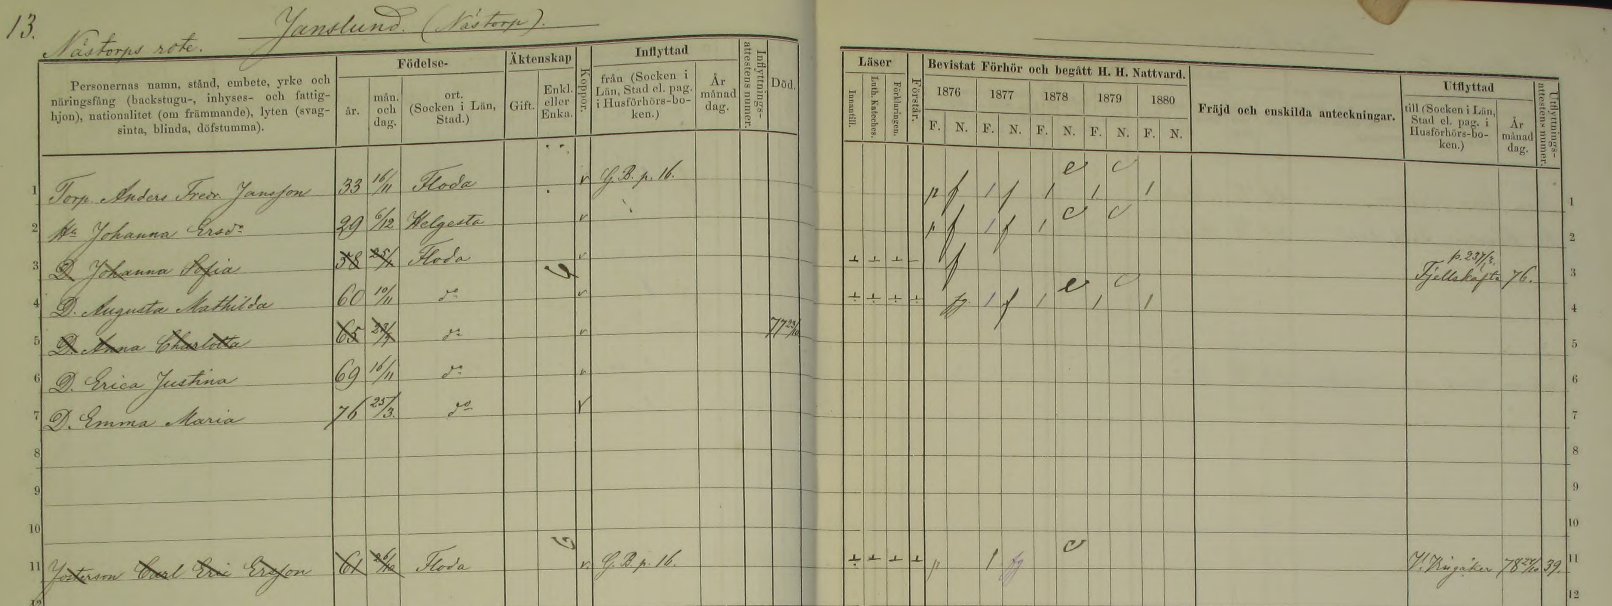 13.
Nästorps rote.
Janslund. (Nästorp).
Personernas namn, stånd, embete, yrke och
näringsfång (backstugu-, inhyses- och fattig-
hjon), nationalitet (om främmande), lyten (svag-
sinta, blinda, döfstumma).
Födelse-
år.
mån.
och
dag.
ort.
(Socken i Län,
Stad.)
Äktenskap
Gift.
Enkl.
eller
Enka.
Koppor.
Inflyttad
från (Socken i
Län, Stad el. pag.
i Husförhörs-bo-
ken.)
År
månad
dag.
Inflyttnings-
attestens numer.
Död.
Läser
Innantill.
Luth. Kateches.
Förklaringen.
Förstår.
Bevistat Förhör och begått H. H. Nattvard.
1876 1877 1878 1879 1880
F. N. F. N. F. N. F. N. F. N.
Fräjd och enskilda anteckningar.
Utflyttad
till (Socken i Län,
Stad el. pag. i
Husförhörs-bo-
ken.)
År
månad
dag.
Utflyttnings-
attestens numer.
1 Torp. Anders Fredr. Jansson 33 16/11 Floda G. B. p. 16. 1
2 Hu Johanna Ersdr 29 6/12 Helgesta 2
3 D. Johanna Sofia 58 25/1 Floda Fjellskäfte 76. 3
4 D. Augusta Mathilda 60 10/11 do 4
5 D. Anna Charlotta 65 do 77 23/10 5
6 D. Erica Justina 69 16/11 do 6
7 D. Emma Maria 76 25/3. do 7
8 8
9 9
10 10
11 Fosterson Carl Eric Ersson 61 26/10 Floda G. B. p. 16. V. Vingåker 78 39. 11
12 12